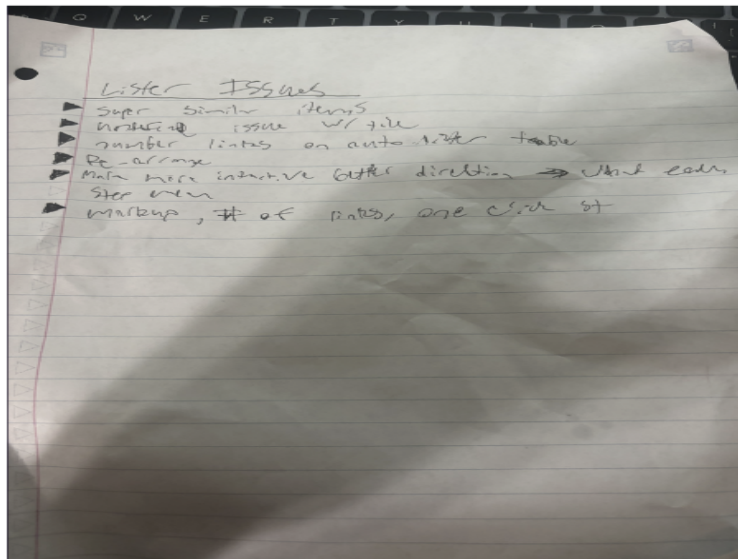 Q W E R T Y U
Lister Issues
Super similr items
issue w/
number lintes on auto lister table
Re-arrange
Make more interactive better direction → what each
step mean
markup, # of lintes, one click st